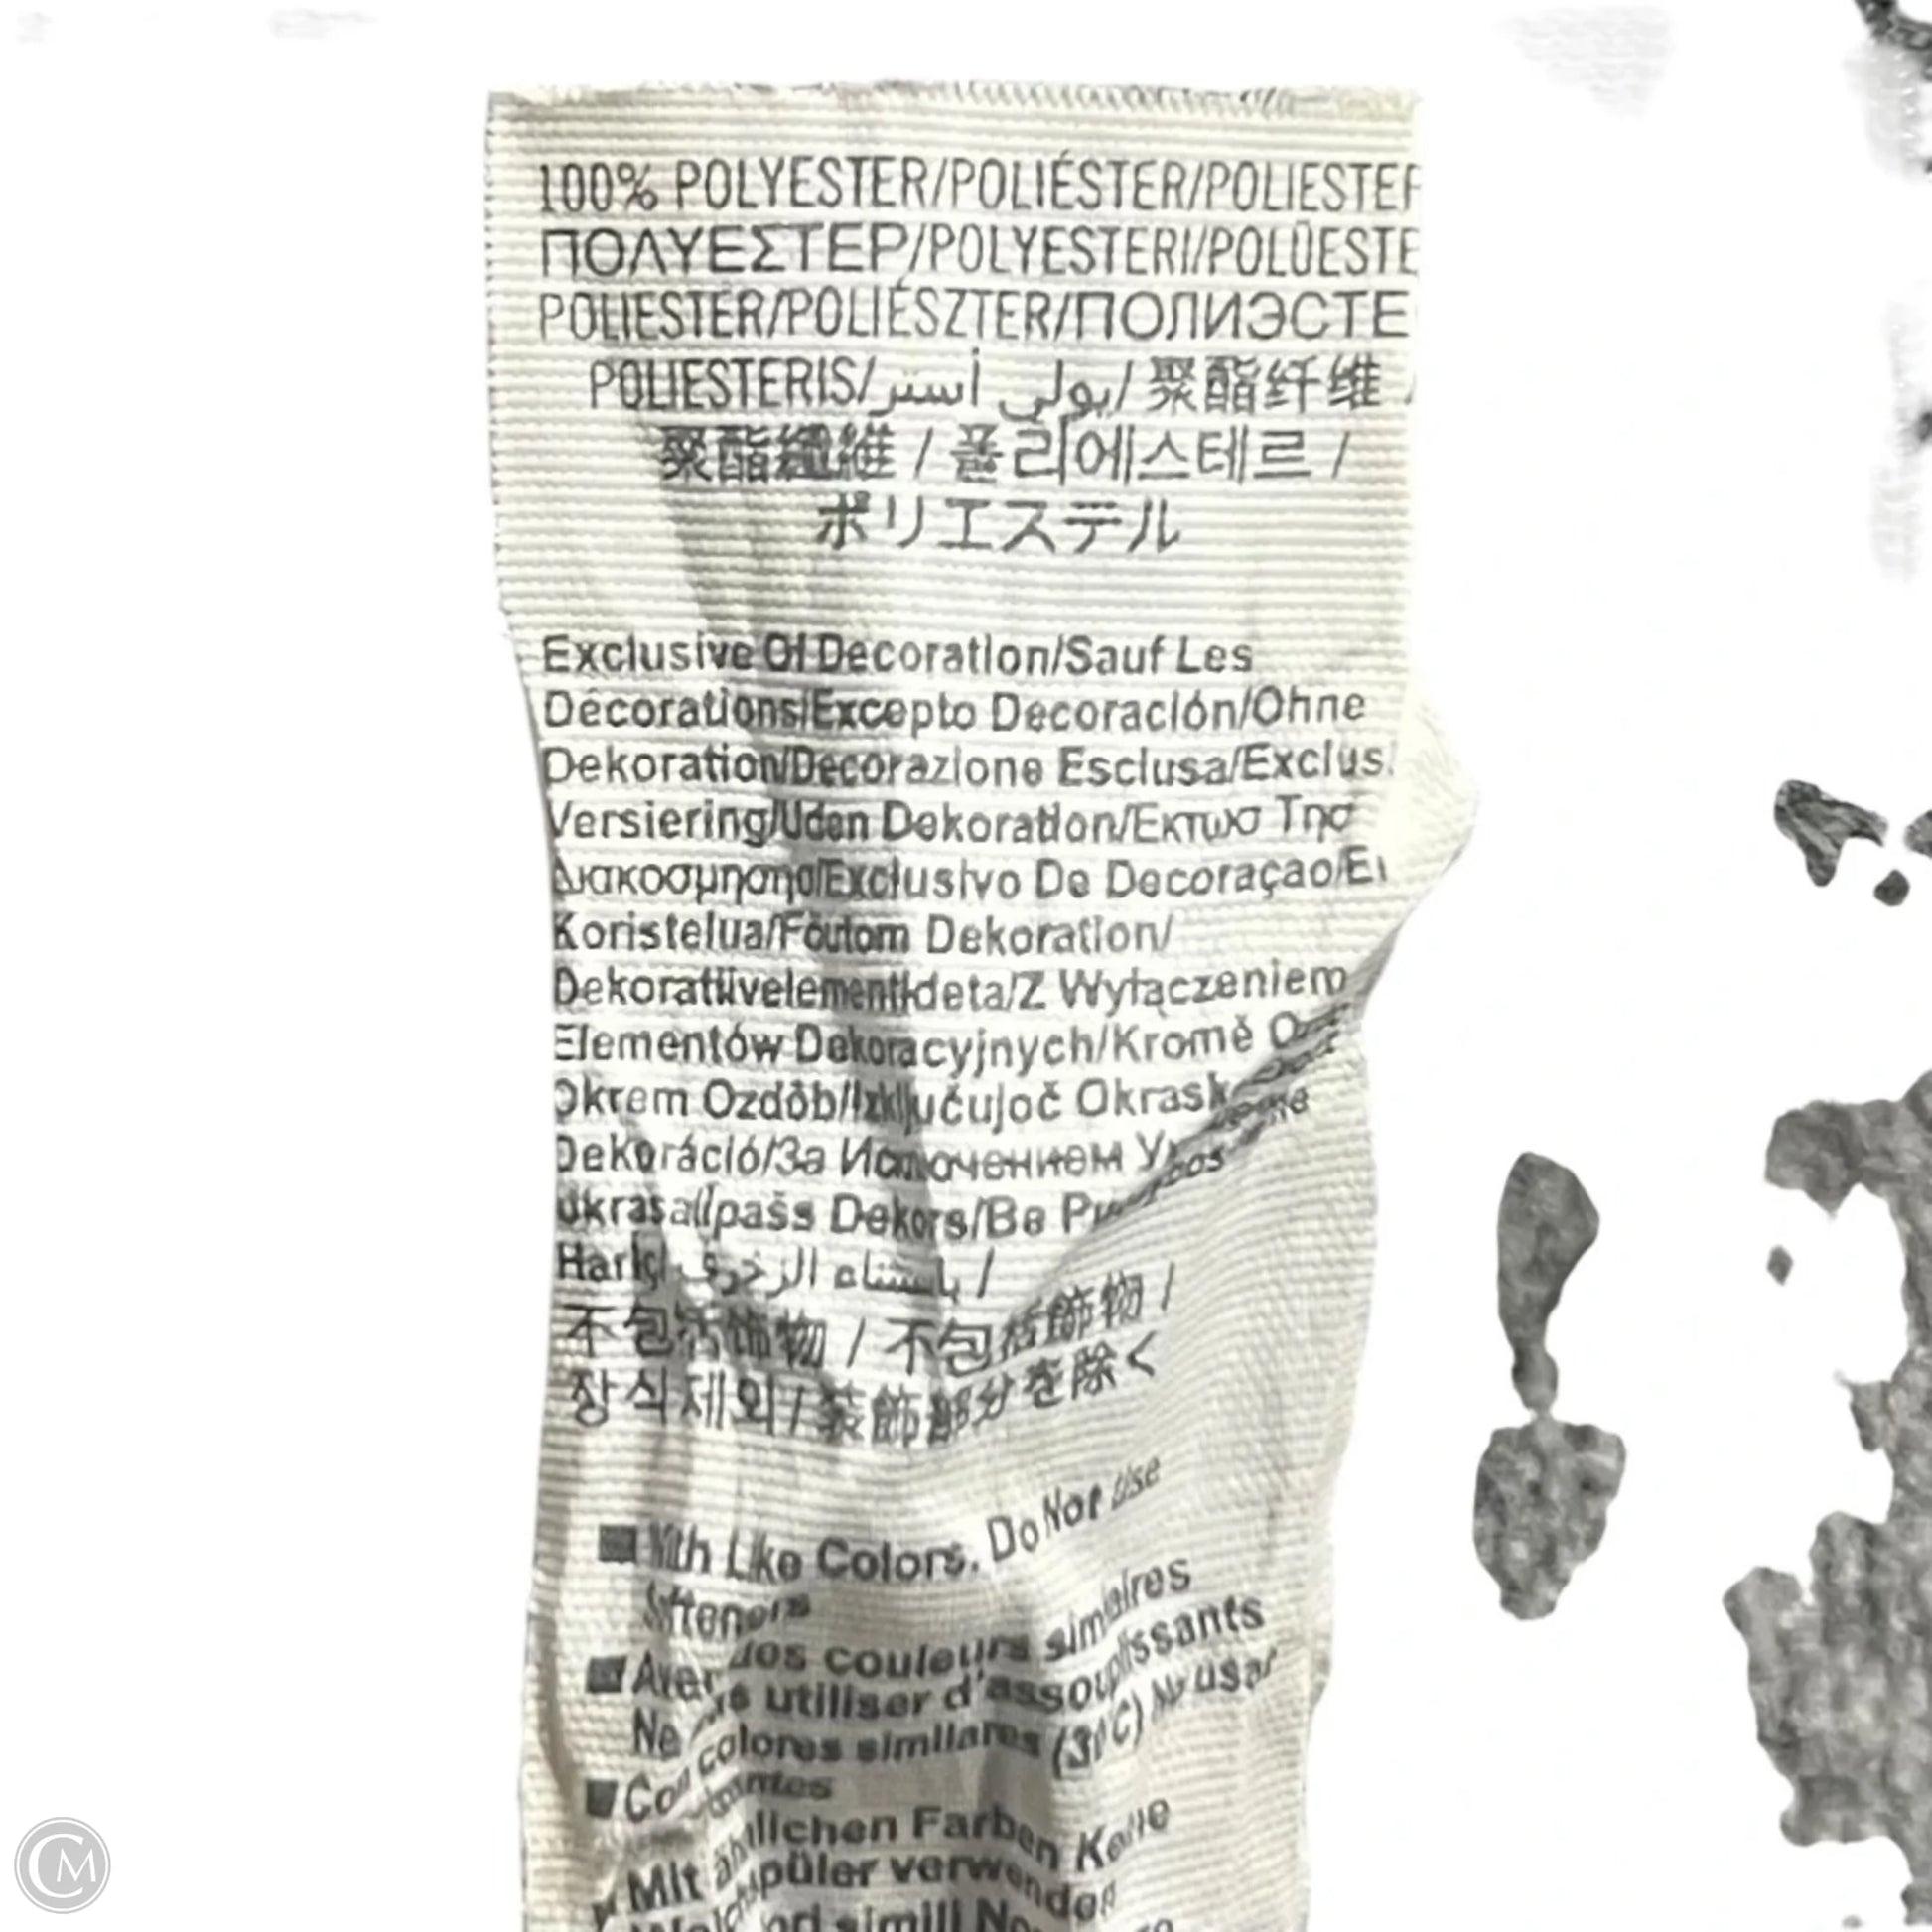 100% POLYESTER/POLIÉSTER/POLIESTER
ΠΟΛΥΕΣΤΕΡ/POLYESTERI/POLÜESTE
POLIESTER/POLIÉSZTER/ПОЛИЭСТЕ
POLIESTERIS/بولي أستر/聚酯纤维 /
聚酯纖維 / 폴리에스테르 /
ポリエステル
Exclusive Of Decoration/Sauf Les
Décorations/Excepto Decoración/Ohne
Dekoration/Decorazione Esclusa/Exclus.
Versiering/Uden Dekoration/Εκτωσ Τησ
Διακοσμησησ/Exclusivo De Decoraçao/Ei
Koristelua/Förutom Dekoration/
Dekoratiivelementideta/Z Wyłączeniem
Elementów Dekoracyjnych/Kromě
Okrem Ozdôb/Izključujoč
Dekoráció/За Исключением
ukrasa/Ipašs Dekors/Be
Hariç/ باستثناء الزخرفة /
不包括饰物 / 不包括飾物 /
장식 제외 / 装飾部分を除く
With Like Colors. Do Not Use
Softeners
Avec des couleurs similaires
Ne pas utiliser d'assouplissants
Con colores similares (30°C) No usar
Mit ähnlichen Farben Keine
Weichspüler verwenden
simili
CM